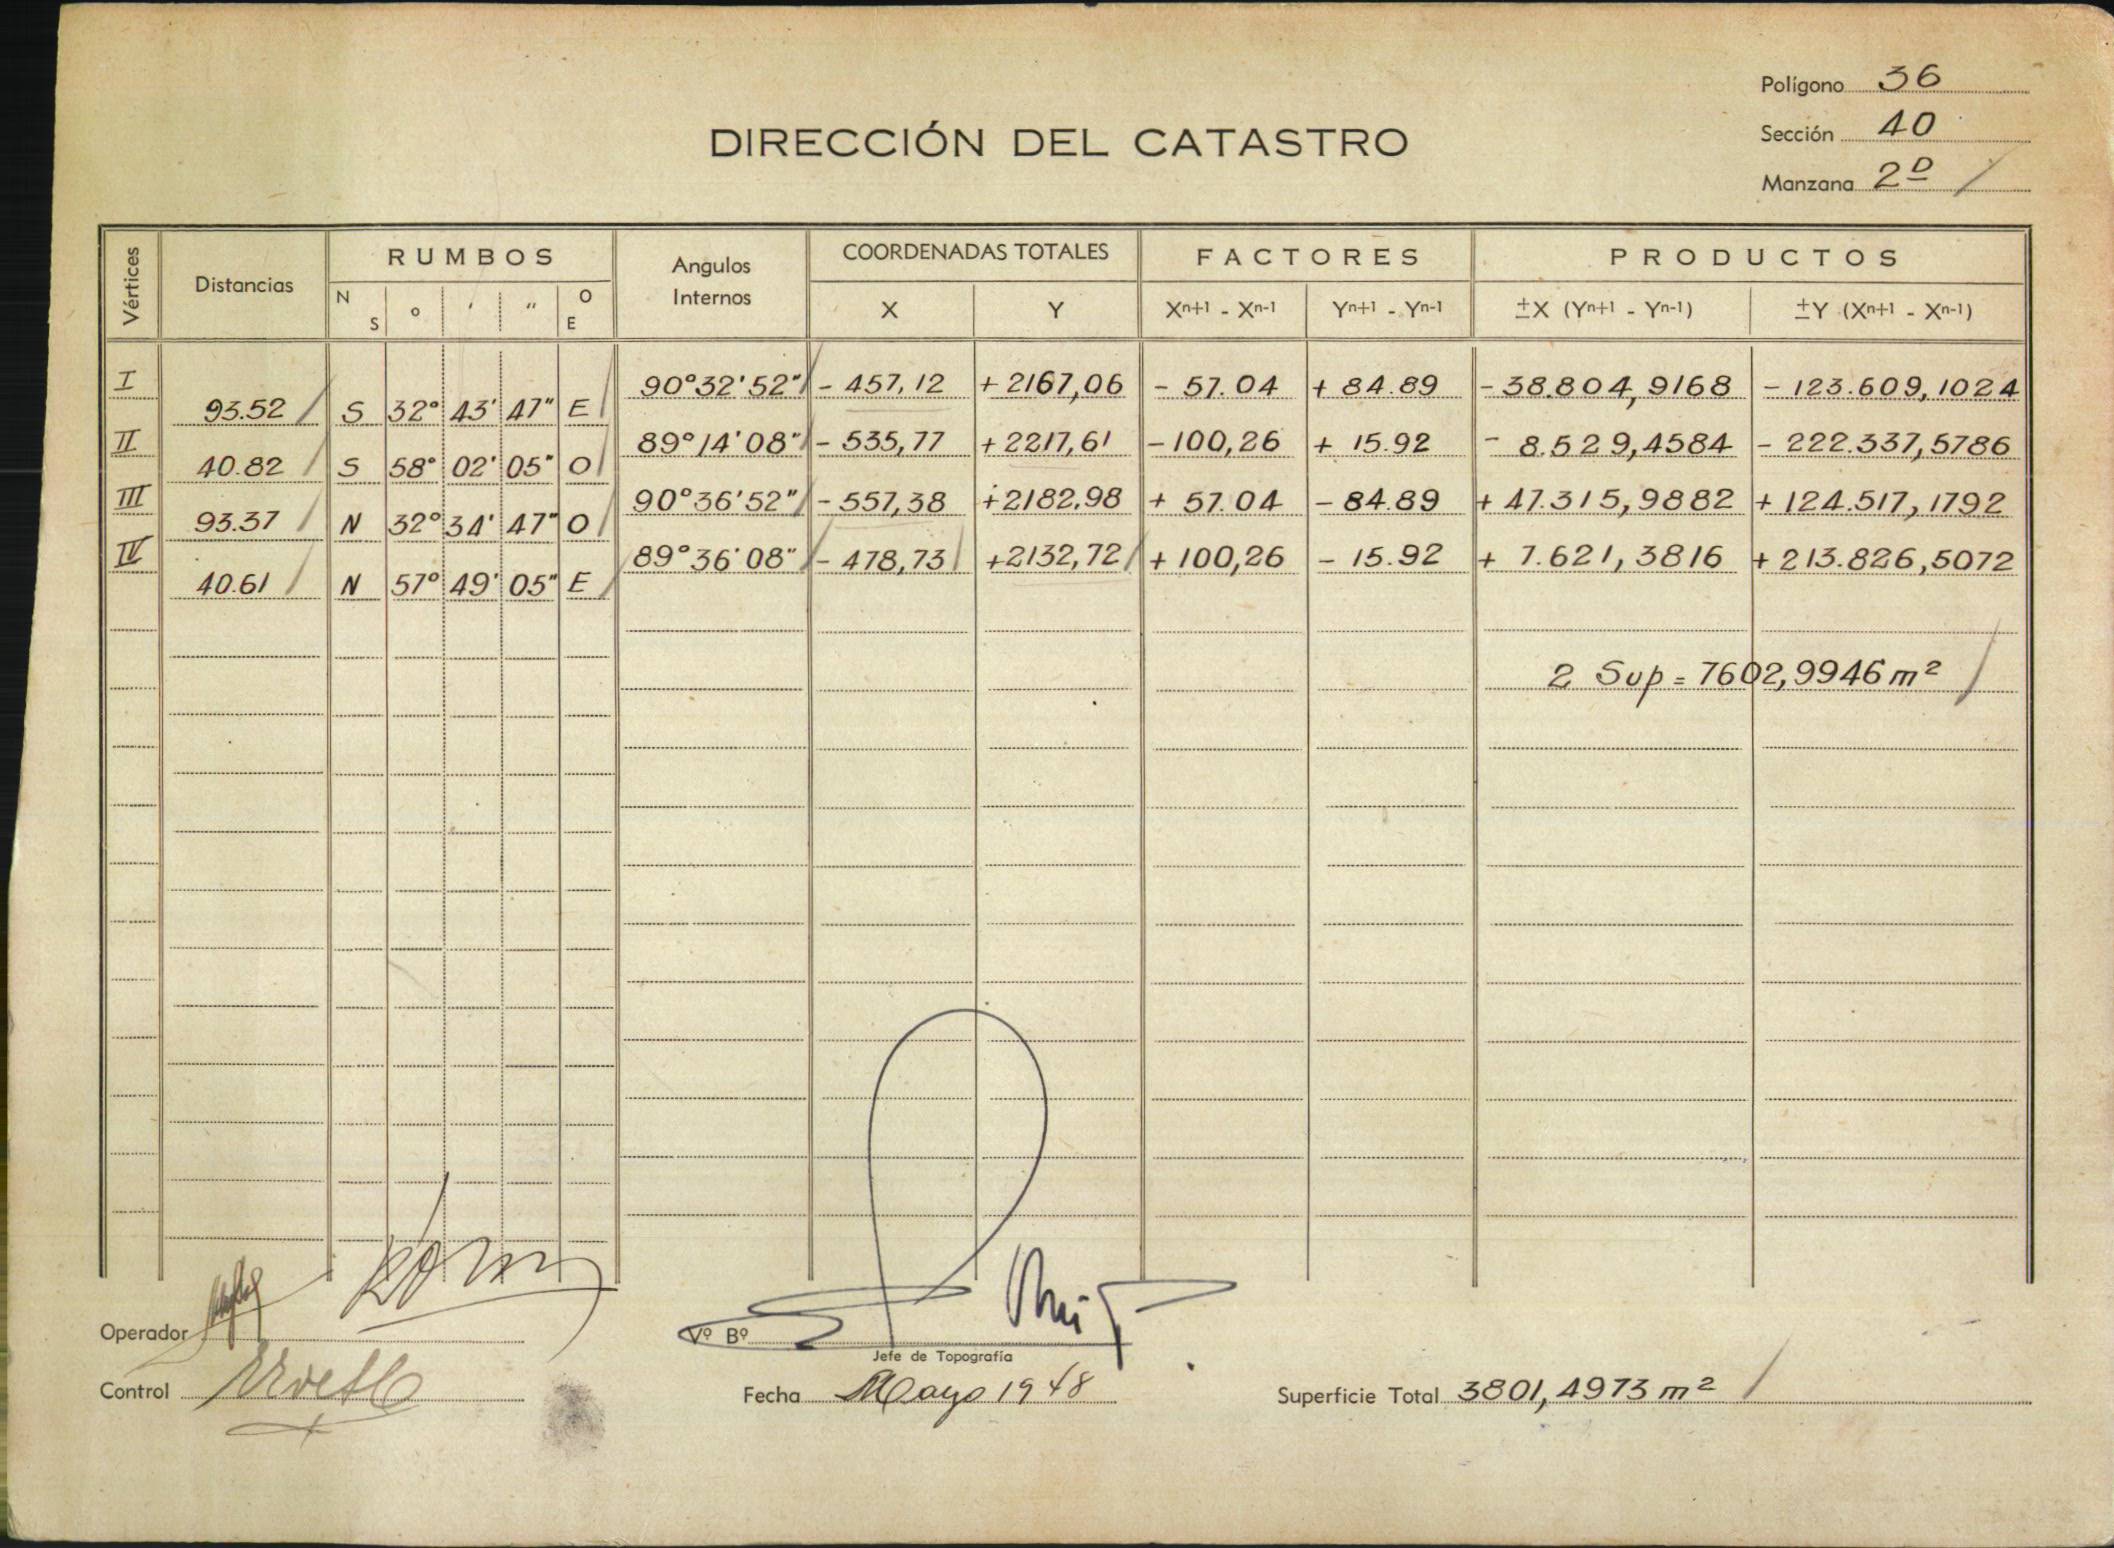 Polígono 36
Sección 40
Manzana 2D
DIRECCIÓN DEL CATASTRO
Vértices Distancias RUMBOS Angulos Internos COORDENADAS TOTALES FACTORES PRODUCTOS
N S ° ' " O E X Y Xn+1 - Xn-1 Yn+1 - Yn-1 ±X (Yn+1 - Yn-1) ±Y (Xn+1 - Xn-1)
I 90°32'52" - 457,12 + 2167,06 - 57.04 + 84.89 - 38.804,9168 - 123.609,1024
93.52 S 32° 43' 47" E
II 89°14'08" - 535,77 + 2217,61 - 100,26 + 15.92 - 8.529,4584 - 222.337,5786
40.82 S 58° 02' 05" O
III 90°36'52" - 557,38 + 2182,98 + 57.04 - 84.89 + 47.315,9882 + 124.517,1792
93.37 N 32° 34' 47" O
IV 89°36'08" - 478,73 + 2132,72 + 100,26 - 15.92 + 7.621,3816 + 213.826,5072
40.61 N 57° 49' 05" E
2 Sup = 7602,9946 m²
Operador
Vº Bº
Jefe de Topografía
Control
Fecha Mayo 1948
Superficie Total 3801,4973 m²